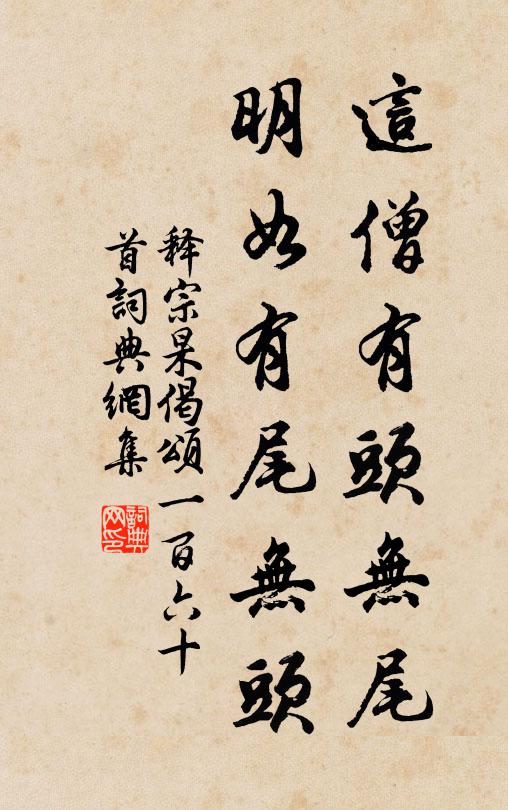 這僧有頭無尾
明如有尾無頭
释宗杲偈頌一百六十
首詞典網集
詞典网印